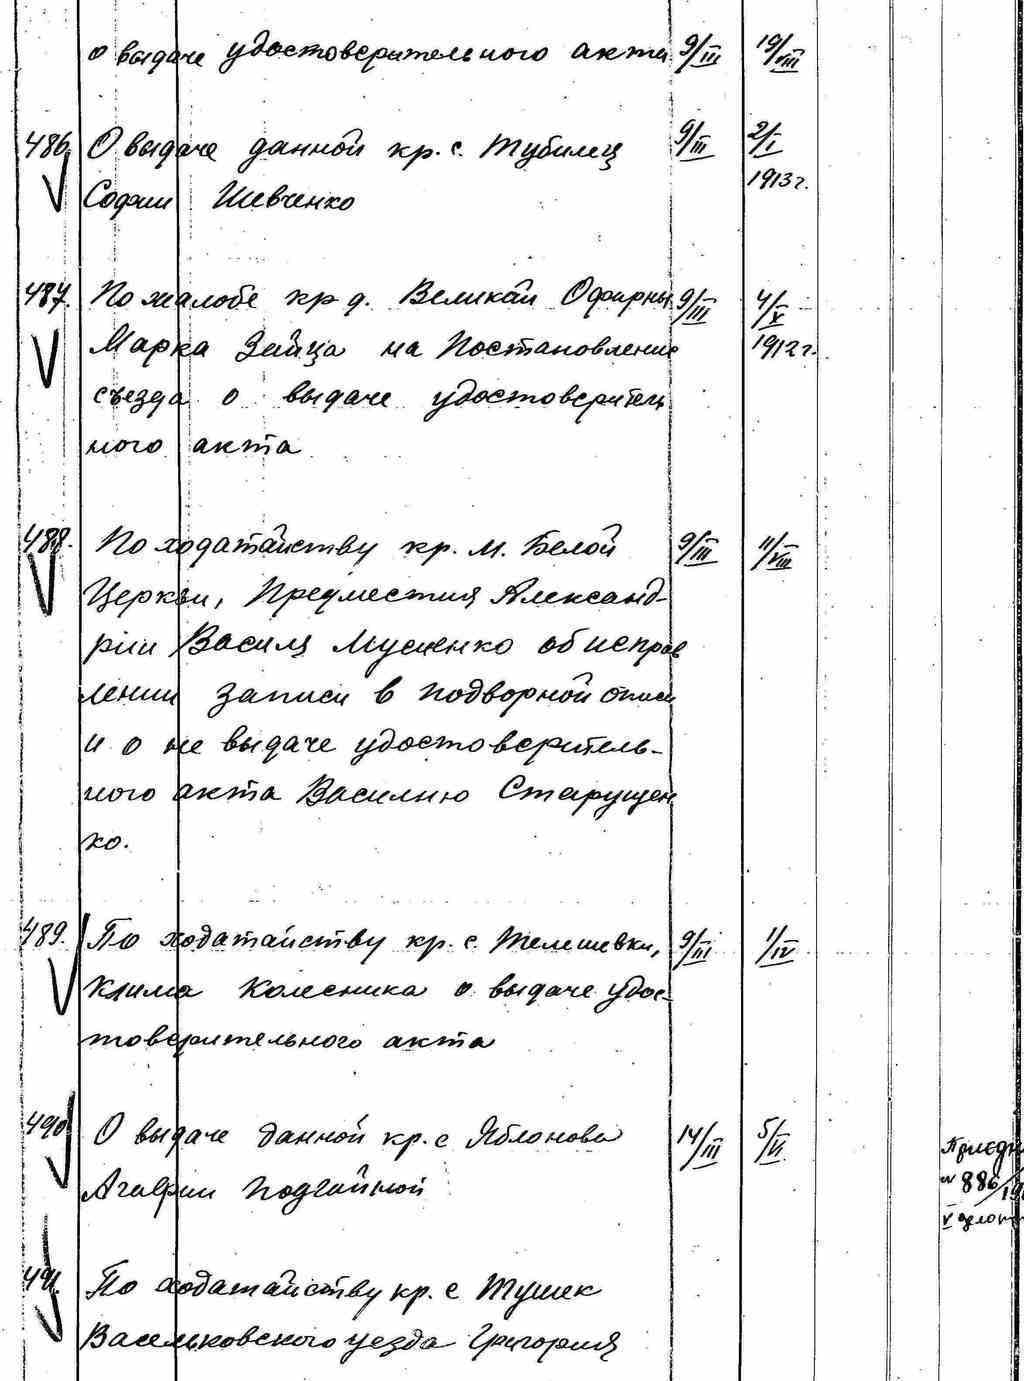 о выдаче удостоверительного акта 9/III 19/VIII
486. О выдаче данной кр. с. Тубилец 9/III 2/I
Софии Шевченко 1913 г.
487. По жалобе кр д. Великой Офирны 9/III 4/V
Марка Зайца на Постановление 1912 г.
съезда о выдаче удостоверитель
ного акта
488. По ходатайству кр. м. Белой 9/III 11/VIII
Церкви, Предместия Александ-
рии Василя Мусиенко об исправ
лении записи в подворной описи
и о не выдаче удостоверитель-
ного акта Василию Старущен
ко.
489. По ходатайству кр. с. Телешевки, 9/III 1/IV
Клима Колесника о выдаче удос-
товерительного акта
490 О выдаче данной кр. с Яблоновки 14/III 5/VI
Агафии Подгайной
886/19
491. По ходатайству кр. с Тушек
Васильковского уезда Григория